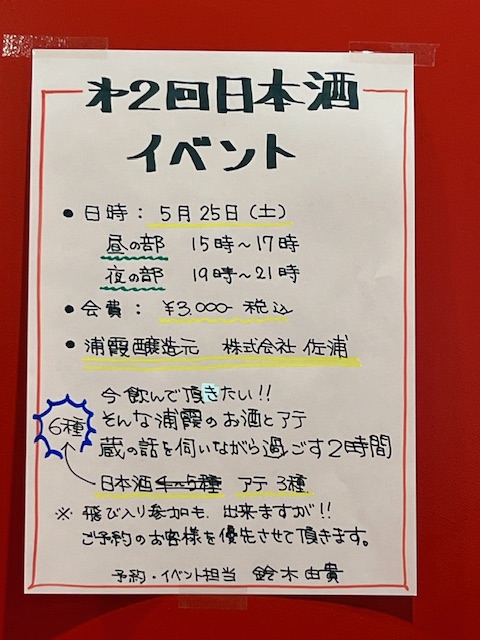 才2回日本酒
イベント
● 日時： 5月25日(土)
昼の部 15時～17時
夜の部 19時～21時
● 会費： ¥3,000- 税込
● 浦霞醸造元 株式会社 佐浦
今飲んで頂きたい!!
6種
そんな浦霞のお酒とアテ
蔵の話を伺いながら過ごす2時間
日本酒4~5種 アテ 3種
※ 飛び入り参加も、出来ますが!!
ご予約のお客様を優先させて頂きます。
予約・イベント担当 鈴木由貴